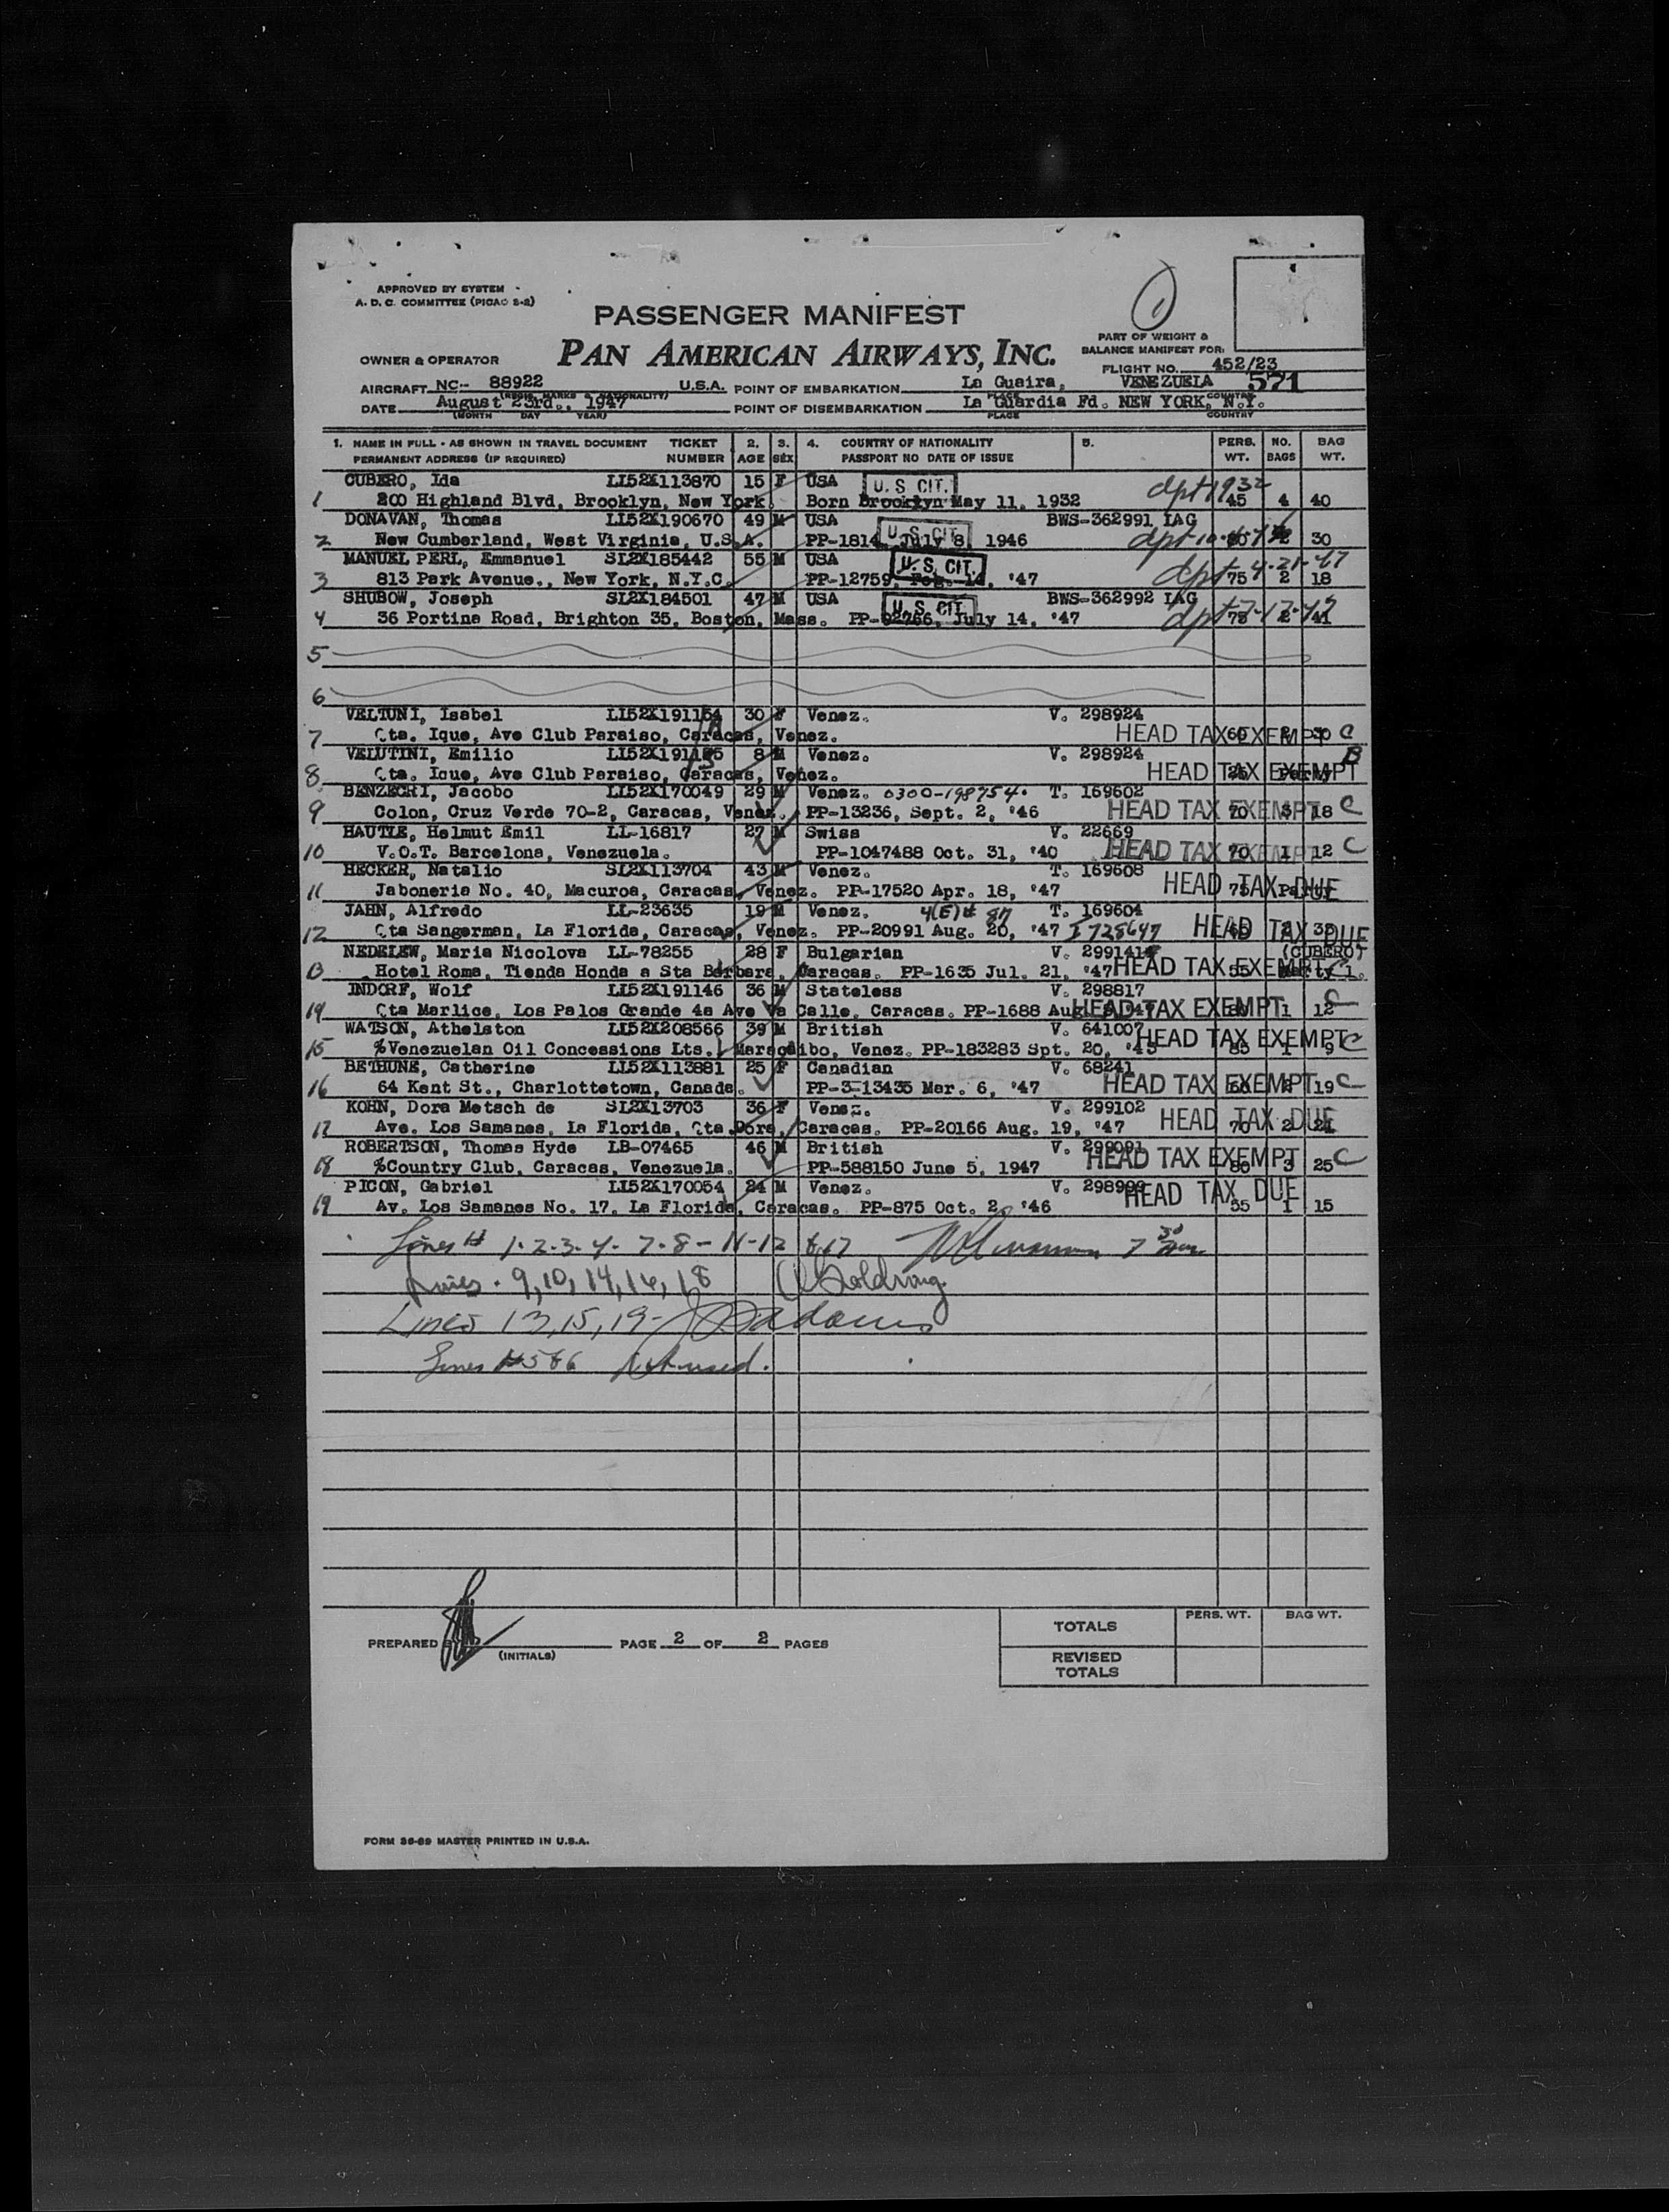 APPROVED BY SYSTEM
A. D. C. COMMITTEE (PICAO 2-2)
PASSENGER MANIFEST
PAN AMERICAN AIRWAYS, INC.
PART OF WEIGHT &
BALANCE MANIFEST FOR:
OWNER & OPERATOR
FLIGHT NO. 452/23
AIRCRAFT NC- 88922 U.S.A. POINT OF EMBARKATION La Guaira, VENEZUELA 571
(REGIS. MARKS & NATIONALITY) PLACE COUNTRY
DATE August 23rd., 1947 POINT OF DISEMBARKATION La Guardia Fd. NEW YORK, N.Y.
(MONTH DAY YEAR) PLACE COUNTRY
1. NAME IN FULL - AS SHOWN IN TRAVEL DOCUMENT TICKET 2. 3. 4. COUNTRY OF NATIONALITY 5. PERS. NO. BAG
PERMANENT ADDRESS (IF REQUIRED) NUMBER AGE SEX PASSPORT NO DATE OF ISSUE WT. BAGS WT.
CUBERO, Ida LI52X113870 15 F USA U. S CIT. dpt 1932
1 200 Highland Blvd, Brooklyn, New York. Born Brooklyn May 11, 1932 45 4 40
DONAVAN, Thomas LI52X190670 49 M USA U. S. CIT BWS-362991 IAG
2 New Cumberland, West Virginia, U.S.A. PP-1814 July 8, 1946 dpt 30
MANUEL PERL, Emmanuel SI2X185442 55 M USA U. S. CIT.
3 813 Park Avenue., New York, N.Y.C. PP-12759, Feb. 14, '47 dpt 4-21-47 75 2 18
SHUBOW, Joseph SI2X184501 47 M USA U. S. CIT BWS-362992 IAG
4 36 Portina Road, Brighton 35, Boston, Mass. PP-92766, July 14, '47 dpt 7-17-47 75 2 41
5
6
VELTUNI, Isabel LI52X191154 30 F Venez. V. 298924
7 Qta. Ique, Ave Club Paraiso, Caracas, Venez. HEAD TAX EXEMPT 60 2 30 C
VELUTINI, Emilio LI52X191155 8 M Venez. V. 298924 B
8 Qta. Ique, Ave Club Paraiso, Caracas, Venez. HEAD TAX EXEMPT
BENZECRI, Jacobo LI52X170049 29 M Venez. 0300-198754. T. 169602
9 Colon, Cruz Verde 70-2, Caracas, Venez. PP-13236, Sept. 2, '46 HEAD TAX EXEMPT 70 18 C
HAUTLE, Helmut Emil LL-16817 27 M Swiss V. 22669
10 V.O.T. Barcelona, Venezuela. PP-1047488 Oct. 31, '40 HEAD TAX EXEMPT 70 1 12 C
HECKER, Natalio SI2X113704 43 M Venez. T. 169608
11 Jaboneria No. 40, Macuroa, Caracas, Venez. PP-17520 Apr. 18, '47 HEAD TAX DUE 75 Party
JAHN, Alfredo LL-23635 19 M Venez. 4(E)# 87 T. 169604
12 Qta Sangerman, La Florida, Caracas, Venez. PP-20991 Aug. 20, '47 I 728647 HEAD TAX DUE
NEDELEW, Maria Nicolova LL-78255 28 F Bulgarian V. 299141 (CUBERO)
13 Hotel Roma, Tienda Honda a Sta Barbara, Caracas. PP-1635 Jul. 21, '47 HEAD TAX EXEMPT 55 Party 1.
INDORF, Wolf LI52X191146 36 M Stateless V. 298817
14 Qta Marlice, Los Palos Grande 4a Ave Calle, Caracas. PP-1688 Aug HEAD TAX EXEMPT 1 12 C
WATSON, Athelston LI52X208566 39 M British V. 641007
15 %Venezuelan Oil Concessions Lts. Maracaibo, Venez. PP-183283 Spt. 20, '45 HEAD TAX EXEMPT 85 1 9 C
BETHUNE, Catherine LI52X113881 25 F Canadian V. 68241
16 64 Kent St., Charlottetown, Canada. PP-3-13435 Mar. 6, '47 HEAD TAX EXEMPT 60 2 19 C
KOHN, Dora Metsch de SI2X13703 36 F Venez. V. 299102
17 Ave. Los Samanes, La Florida, Qta Dora, Caracas. PP-20166 Aug. 19, '47 HEAD TAX DUE 70 2 21
ROBERTSON, Thomas Hyde LB-07465 46 M British V. 299091
18 %Country Club, Caracas, Venezuela. PP-588150 June 5, 1947 HEAD TAX EXEMPT 80 3 25 C
PICON, Gabriel LI52X170054 24 M Venez. V. 298999
19 Av. Los Samanes No. 17, La Florida, Caracas. PP-875 Oct. 2, '46 HEAD TAX DUE 55 1 15
Lines # 1-2-3-4-7-8-11-12 &17
Lines - 9, 10, 14, 16, 18 Goldring
Lines 13, 15, 19- Adams
Lines #5&6 Not used.
PREPARED BY PAGE 2 OF 2 PAGES
(INITIALS)
PERS. WT. BAG WT.
TOTALS
REVISED TOTALS
FORM 36-89 MASTER PRINTED IN U.S.A.